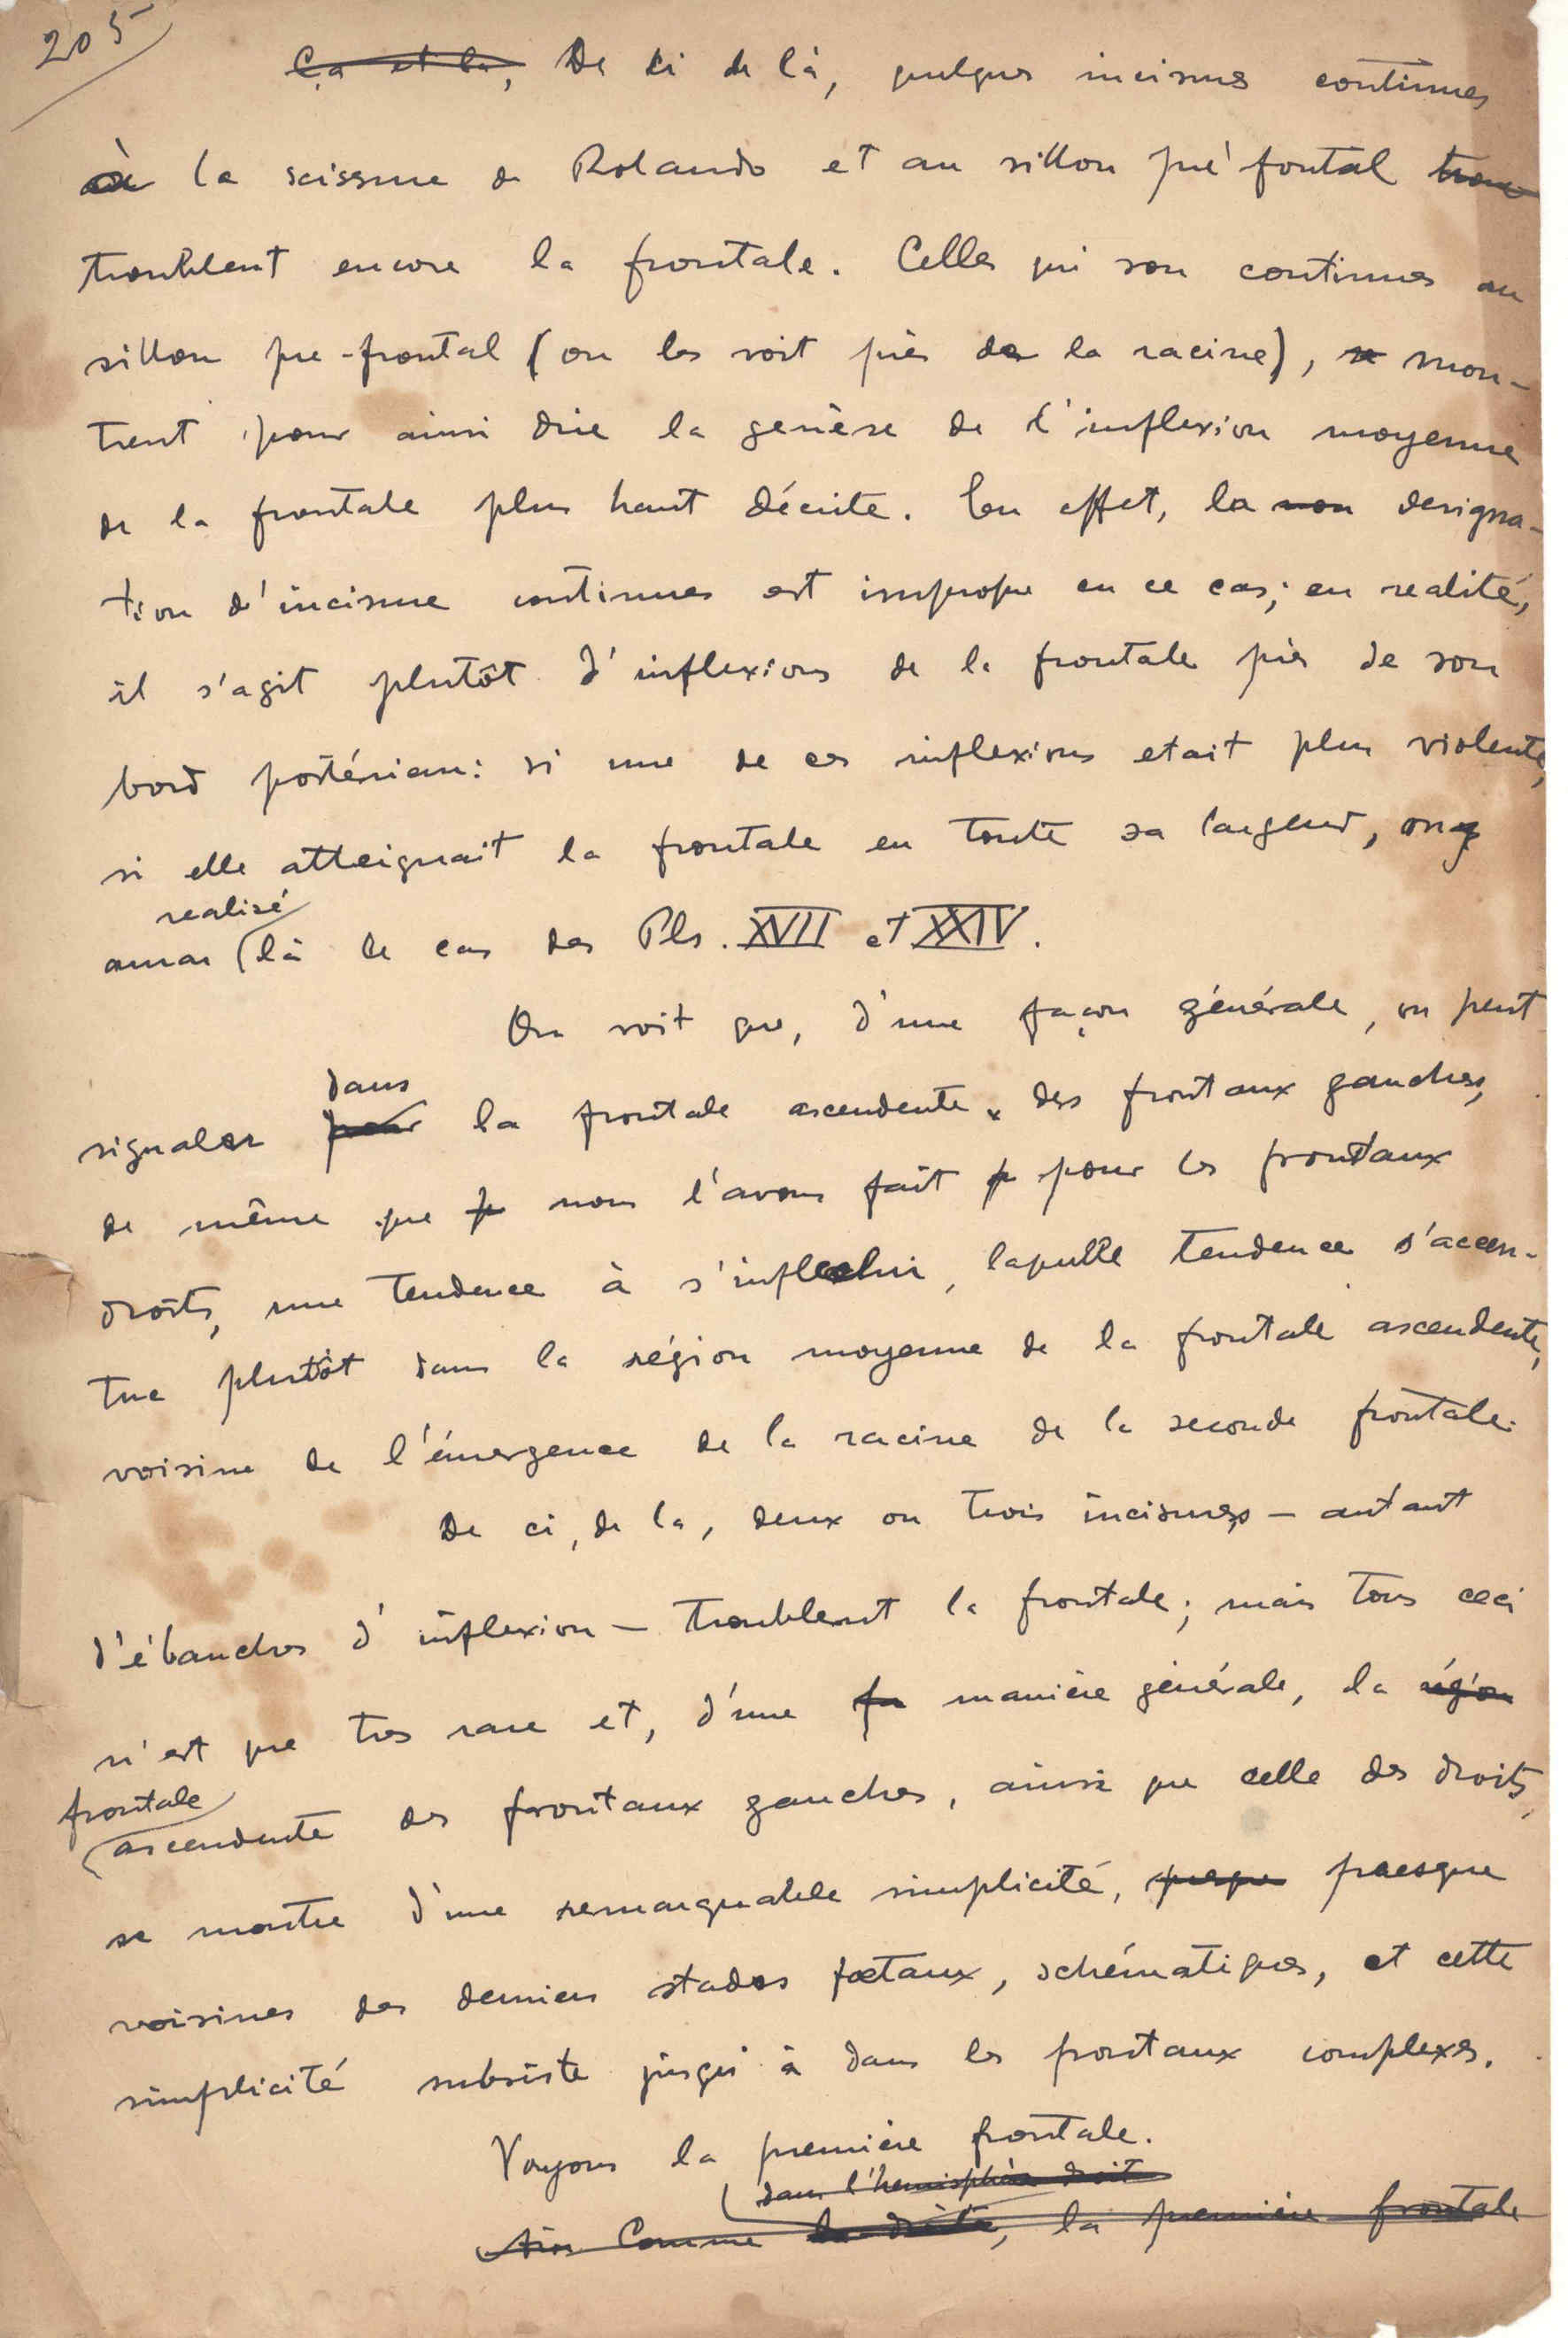 205
Ça et là, De ci de là, quelques incisures continues
à la scissure de Rolando et au sillon pré fontal trou
troublent encore la frontale. Celles qui son continues au
sillon pre-frontal (on les voit près de la racine), se mon-
trent pour ainsi dire la genèse de l'inflexion moyenne
de la frontale plus haut décrite. En effet, la non designa-
tion d'incisure continues est impropre en ce cas; en realité,
il s'agit plutôt d'inflexions de la frontale près de son
bord postérieur: si une de ces inflexions etait plus violente,
si elle atteignait la frontale en toute sa largeur, on
realisé
aurai là le cas des Pls. XVII et XXIV.
On voit que, d'une façon générale, on peut
dans
signaler pour la frontale ascendente des frontaux gauches,
de même que je nous l'avons fait p pour les frontaux
droits, une tendence à s'inflechir, laquelle tendence s'accen-
tue plutôt dans la région moyenne de la frontale ascendente,
voisine de l'émergence de la racine de la seconde frontale.
De ci, de la, deux ou trois incisures - autant
d'ébauches d'inflexion - troublent la frontale; mais tous ceci
n'est que tres rare et, d'une fa manière générale, la région
frontale
ascendente des frontaux gauches, ainsi que celle des droits,
se montre d'une remarquable simplicité, presque praesque
voisines des derniers stades fœtaux, schématiques, et cette
simplicité subsiste jusqu'à dans les frontaux complexes.
Voyons la première frontale.
dans l'hemisphère droit
Ains Comme la droite, la première frontale